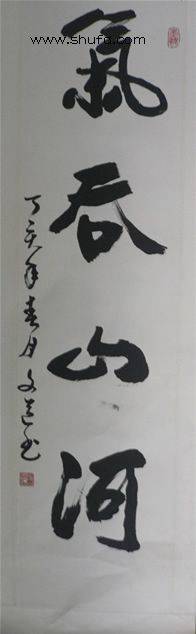 氣吞山河
丁亥年春月文送书
www.shufa.com